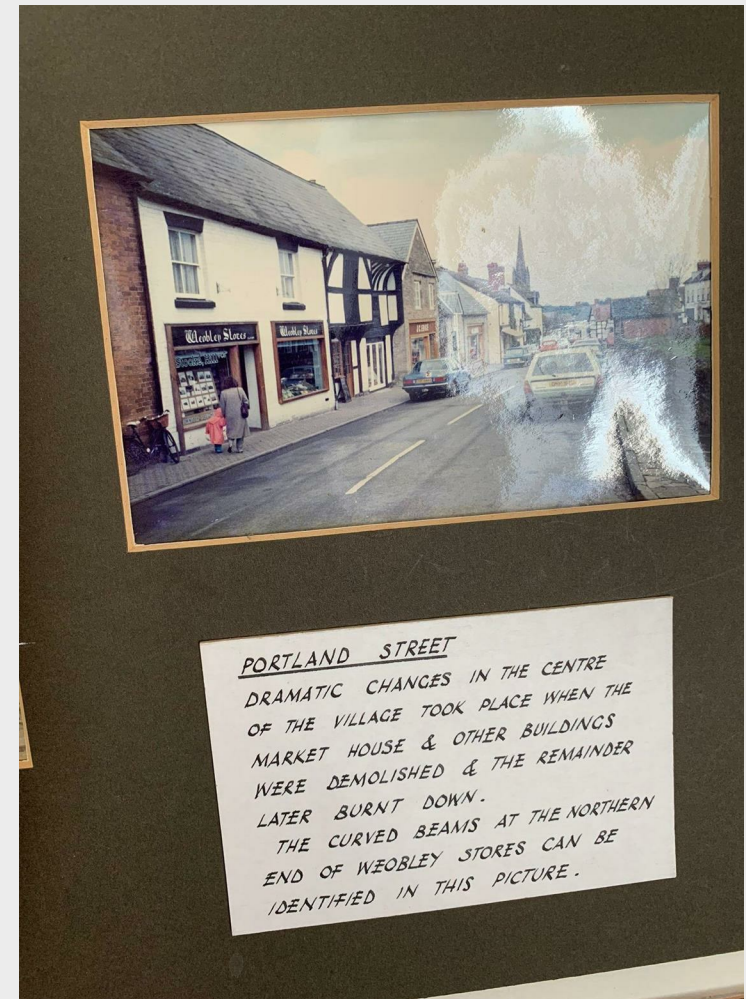 Weobley Stores
Weobley Stores
PORTLAND STREET
DRAMATIC CHANGES IN THE CENTRE
OF THE VILLAGE TOOK PLACE WHEN THE
MARKET HOUSE & OTHER BUILDINGS
WERE DEMOLISHED & THE REMAINDER
LATER BURNT DOWN.
THE CURVED BEAMS AT THE NORTHERN
END OF WEOBLEY STORES CAN BE
IDENTIFIED IN THIS PICTURE.